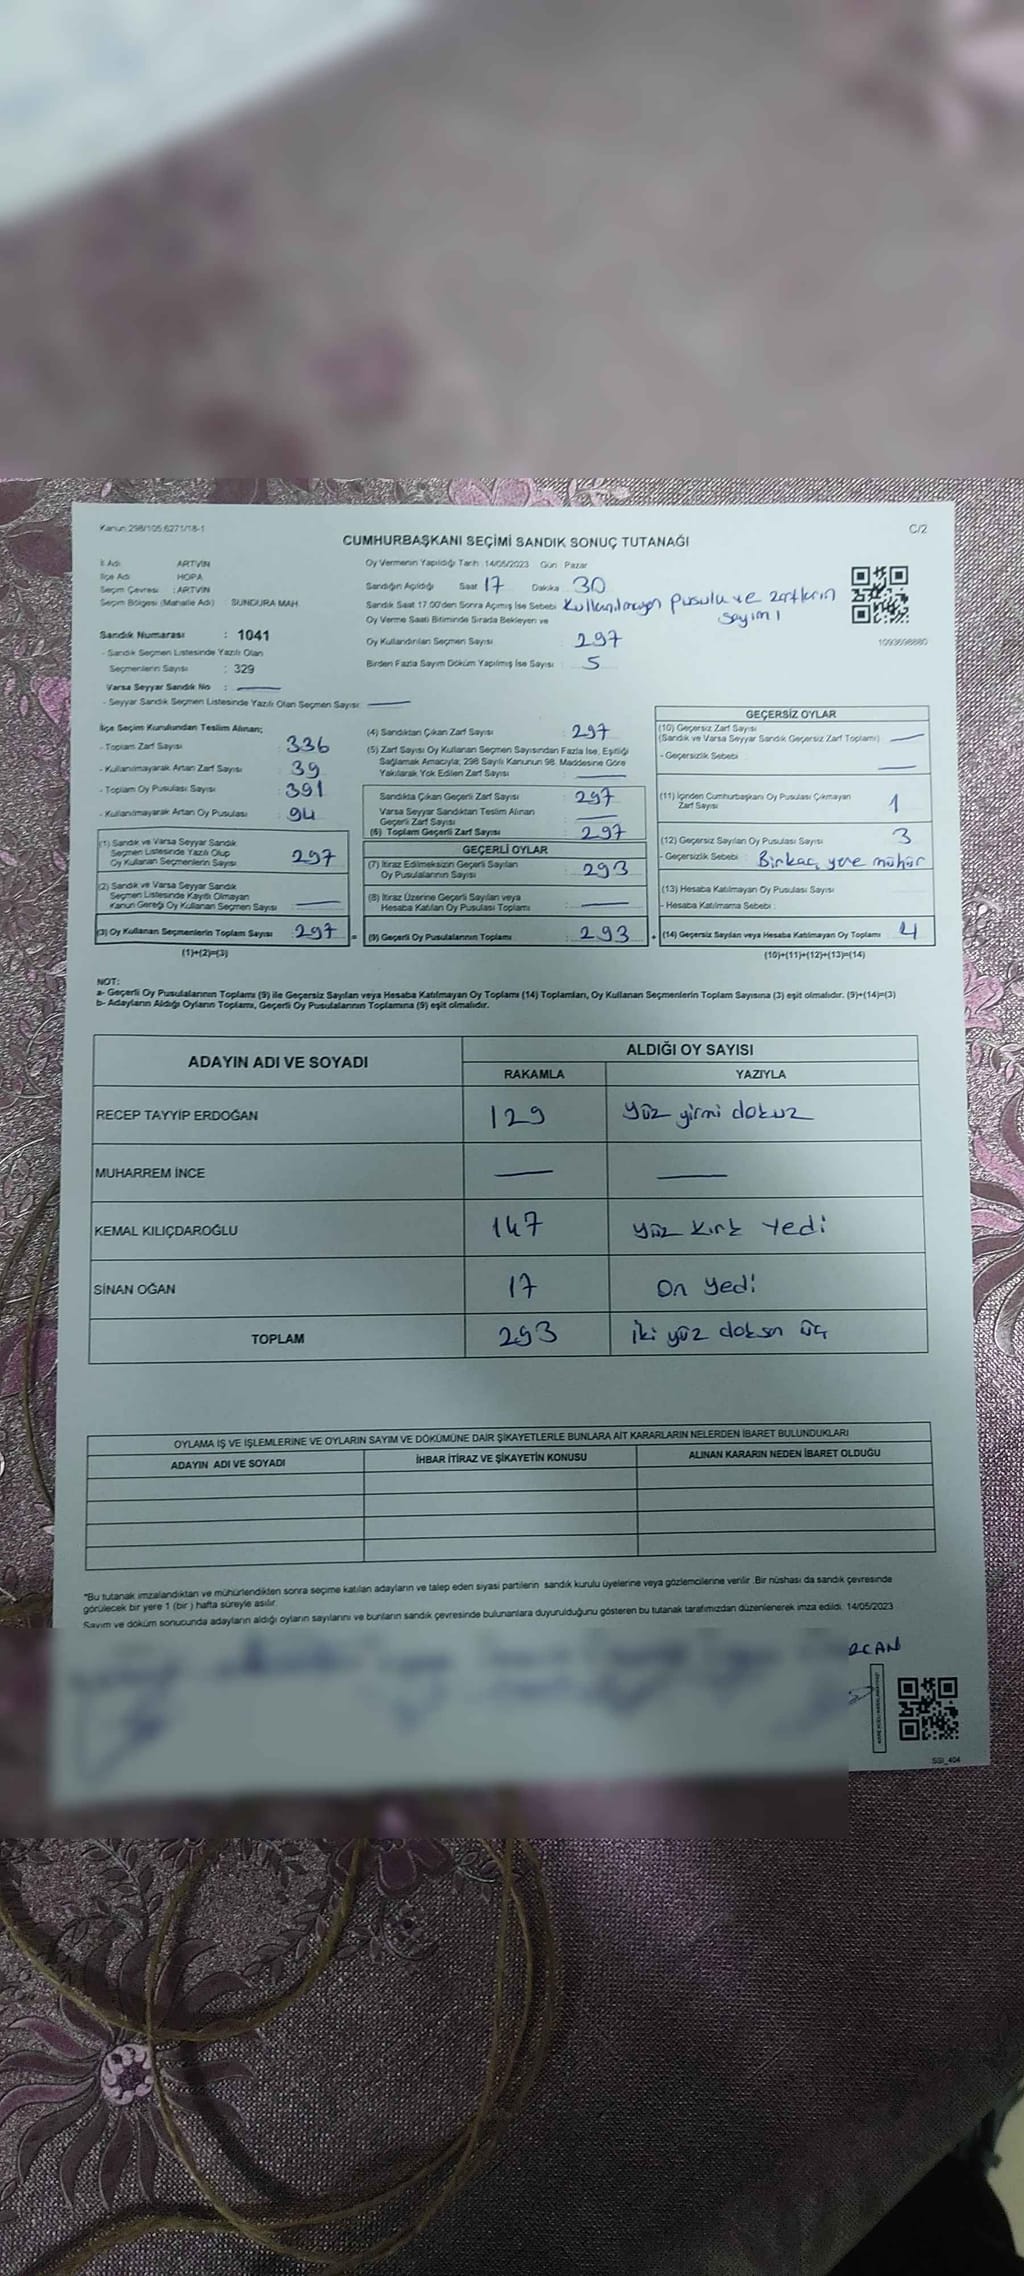 Kanun:298/105,6271/18-1
C/2
CUMHURBAŞKANI SEÇİMİ SANDIK SONUÇ TUTANAĞI
İl Adı : ARTVİN
İlçe Adı : HOPA
Seçim Çevresi : ARTVİN
Seçim Bölgesi (Mahalle Adı) : SUNDURA MAH.
Sandık Numarası : 1041
- Sandık Seçmen Listesinde Yazılı Olan
Seçmenlerin Sayısı : 329
Varsa Seyyar Sandık No :
- Seyyar Sandık Seçmen Listesinde Yazılı Olan Seçmen Sayısı:
Oy Vermenin Yapıldığı Tarih 14/05/2023 Gün: Pazar
Sandığın Açıldığı Saat 17 Dakika 30
Sandık Saat 17.00'den Sonra Açılmış İse Sebebi Kullanılmayan pusula ve zarfların
sayımı
Oy Verme Saati Bitiminde Sırada Bekleyen ve
Oy Kullandırılan Seçmen Sayısı : 297
Birden Fazla Sayım Döküm Yapılmış İse Sayısı : 5
1093698880
İlçe Seçim Kurulundan Teslim Alınan;
- Toplam Zarf Sayısı : 336
- Kullanılmayarak Artan Zarf Sayısı : 39
- Toplam Oy Pusulası Sayısı : 391
- Kullanılmayarak Artan Oy Pusulası : 94
(1) Sandık ve Varsa Seyyar Sandık
Seçmen Listesinde Yazılı Olup
Oy Kullanan Seçmenlerin Sayısı : 297
(2) Sandık ve Varsa Seyyar Sandık
Seçmen Listesinde Kayıtlı Olmayan
Kanun Gereği Oy Kullanan Seçmen Sayısı :
(3) Oy Kullanan Seçmenlerin Toplam Sayısı : 297
(1)+(2)=(3)
(4) Sandıktan Çıkan Zarf Sayısı : 297
(5) Zarf Sayısı Oy Kullanan Seçmen Sayısından Fazla İse, Eşitliği
Sağlamak Amacıyla; 298 Sayılı Kanunun 98. Maddesine Göre
Yakılarak Yok Edilen Zarf Sayısı :
Sandıkta Çıkan Geçerli Zarf Sayısı : 297
Varsa Seyyar Sandıktan Teslim Alınan
Geçerli Zarf Sayısı :
(6) Toplam Geçerli Zarf Sayısı : 297
GEÇERLİ OYLAR
(7) İtiraz Edilmeksizin Geçerli Sayılan
Oy Pusulalarının Sayısı : 293
(8) İtiraz Üzerine Geçerli Sayılan veya
Hesaba Katılan Oy Pusulası Toplamı :
= (9) Geçerli Oy Pusulalarının Toplamı : 293 +
GEÇERSİZ OYLAR
(10) Geçersiz Zarf Sayısı
(Sandık ve Varsa Seyyar Sandık Geçersiz Zarf Toplamı) :
- Geçersizlik Sebebi :
(11) İçinden Cumhurbaşkanı Oy Pusulası Çıkmayan
Zarf Sayısı : 1
(12) Geçersiz Sayılan Oy Pusulası Sayısı : 3
- Geçersizlik Sebebi : Birkaç yere mühür
(13) Hesaba Katılmayan Oy Pusulası Sayısı :
- Hesaba Katılmama Sebebi :
(14) Geçersiz Sayılan veya Hesaba Katılmayan Oy Toplamı : 4
(10)+(11)+(12)+(13)=(14)
NOT:
a- Geçerli Oy Pusulalarının Toplamı (9) ile Geçersiz Sayılan veya Hesaba Katılmayan Oy Toplamı (14) Toplamları, Oy Kullanan Seçmenlerin Toplam Sayısına (3) eşit olmalıdır. (9)+(14)=(3)
b- Adayların Aldığı Oyların Toplamı, Geçerli Oy Pusulalarının Toplamına (9) eşit olmalıdır.
ADAYIN ADI VE SOYADI ALDIĞI OY SAYISI
RAKAMLA YAZIYLA
RECEP TAYYİP ERDOĞAN 129 yüz yirmi dokuz
MUHARREM İNCE
KEMAL KILIÇDAROĞLU 147 yüz kırk yedi
SİNAN OĞAN 17 On yedi
TOPLAM 293 iki yüz doksan üç
OYLAMA İŞ VE İŞLEMLERİNE VE OYLARIN SAYIM VE DÖKÜMÜNE DAİR ŞİKAYETLERLE BUNLARA AİT KARARLARIN NELERDEN İBARET BULUNDUKLARI
ADAYIN ADI VE SOYADI İHBAR İTİRAZ VE ŞİKAYETİN KONUSU ALINAN KARARIN NEDEN İBARET OLDUĞU
*Bu tutanak imzalandıktan ve mühürlendikten sonra seçime katılan adayların ve talep eden siyasi partilerin sandık kurulu üyelerine veya gözlemcilerine verilir. Bir nüshası da sandık çevresinde
görülecek bir yere 1 (bir ) hafta süreyle asılır.
Sayım ve döküm sonucunda adayların aldığı oyların sayılarını ve bunların sandık çevresinde bulunanlara duyurulduğunu gösteren bu tutanak tarafımızdan düzenlenerek imza edildi. 14/05/2023
RCAN
SGİ_404